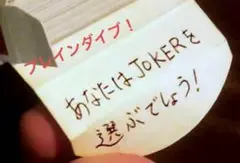 ブレインダイブ！
あなたはJOKERを
選ぶでしょう！